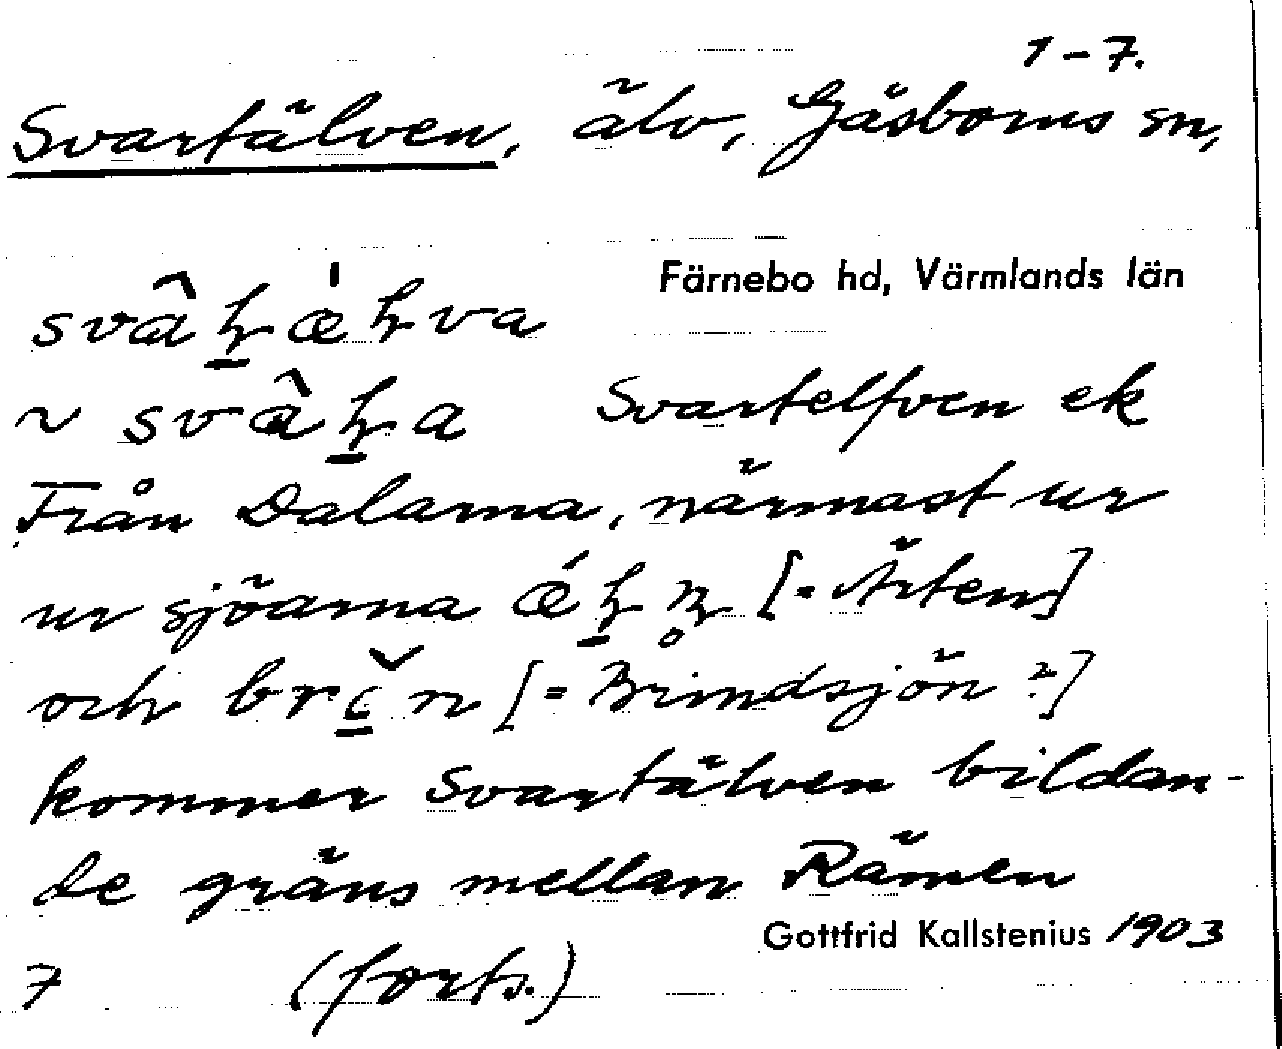 1-7.
Svartälven, älv, Gåsborns sn,
Färnebo hd, Värmlands län
~ Svartelfven ek
Från Dalarna, närmast ur
ur sjöarna [= Ärten]
och [= Brindsjön ?]
kommer Svartälven bildan-
de gräns mellan Rämen
Gottfrid Kallstenius 1903
7 (forts.)